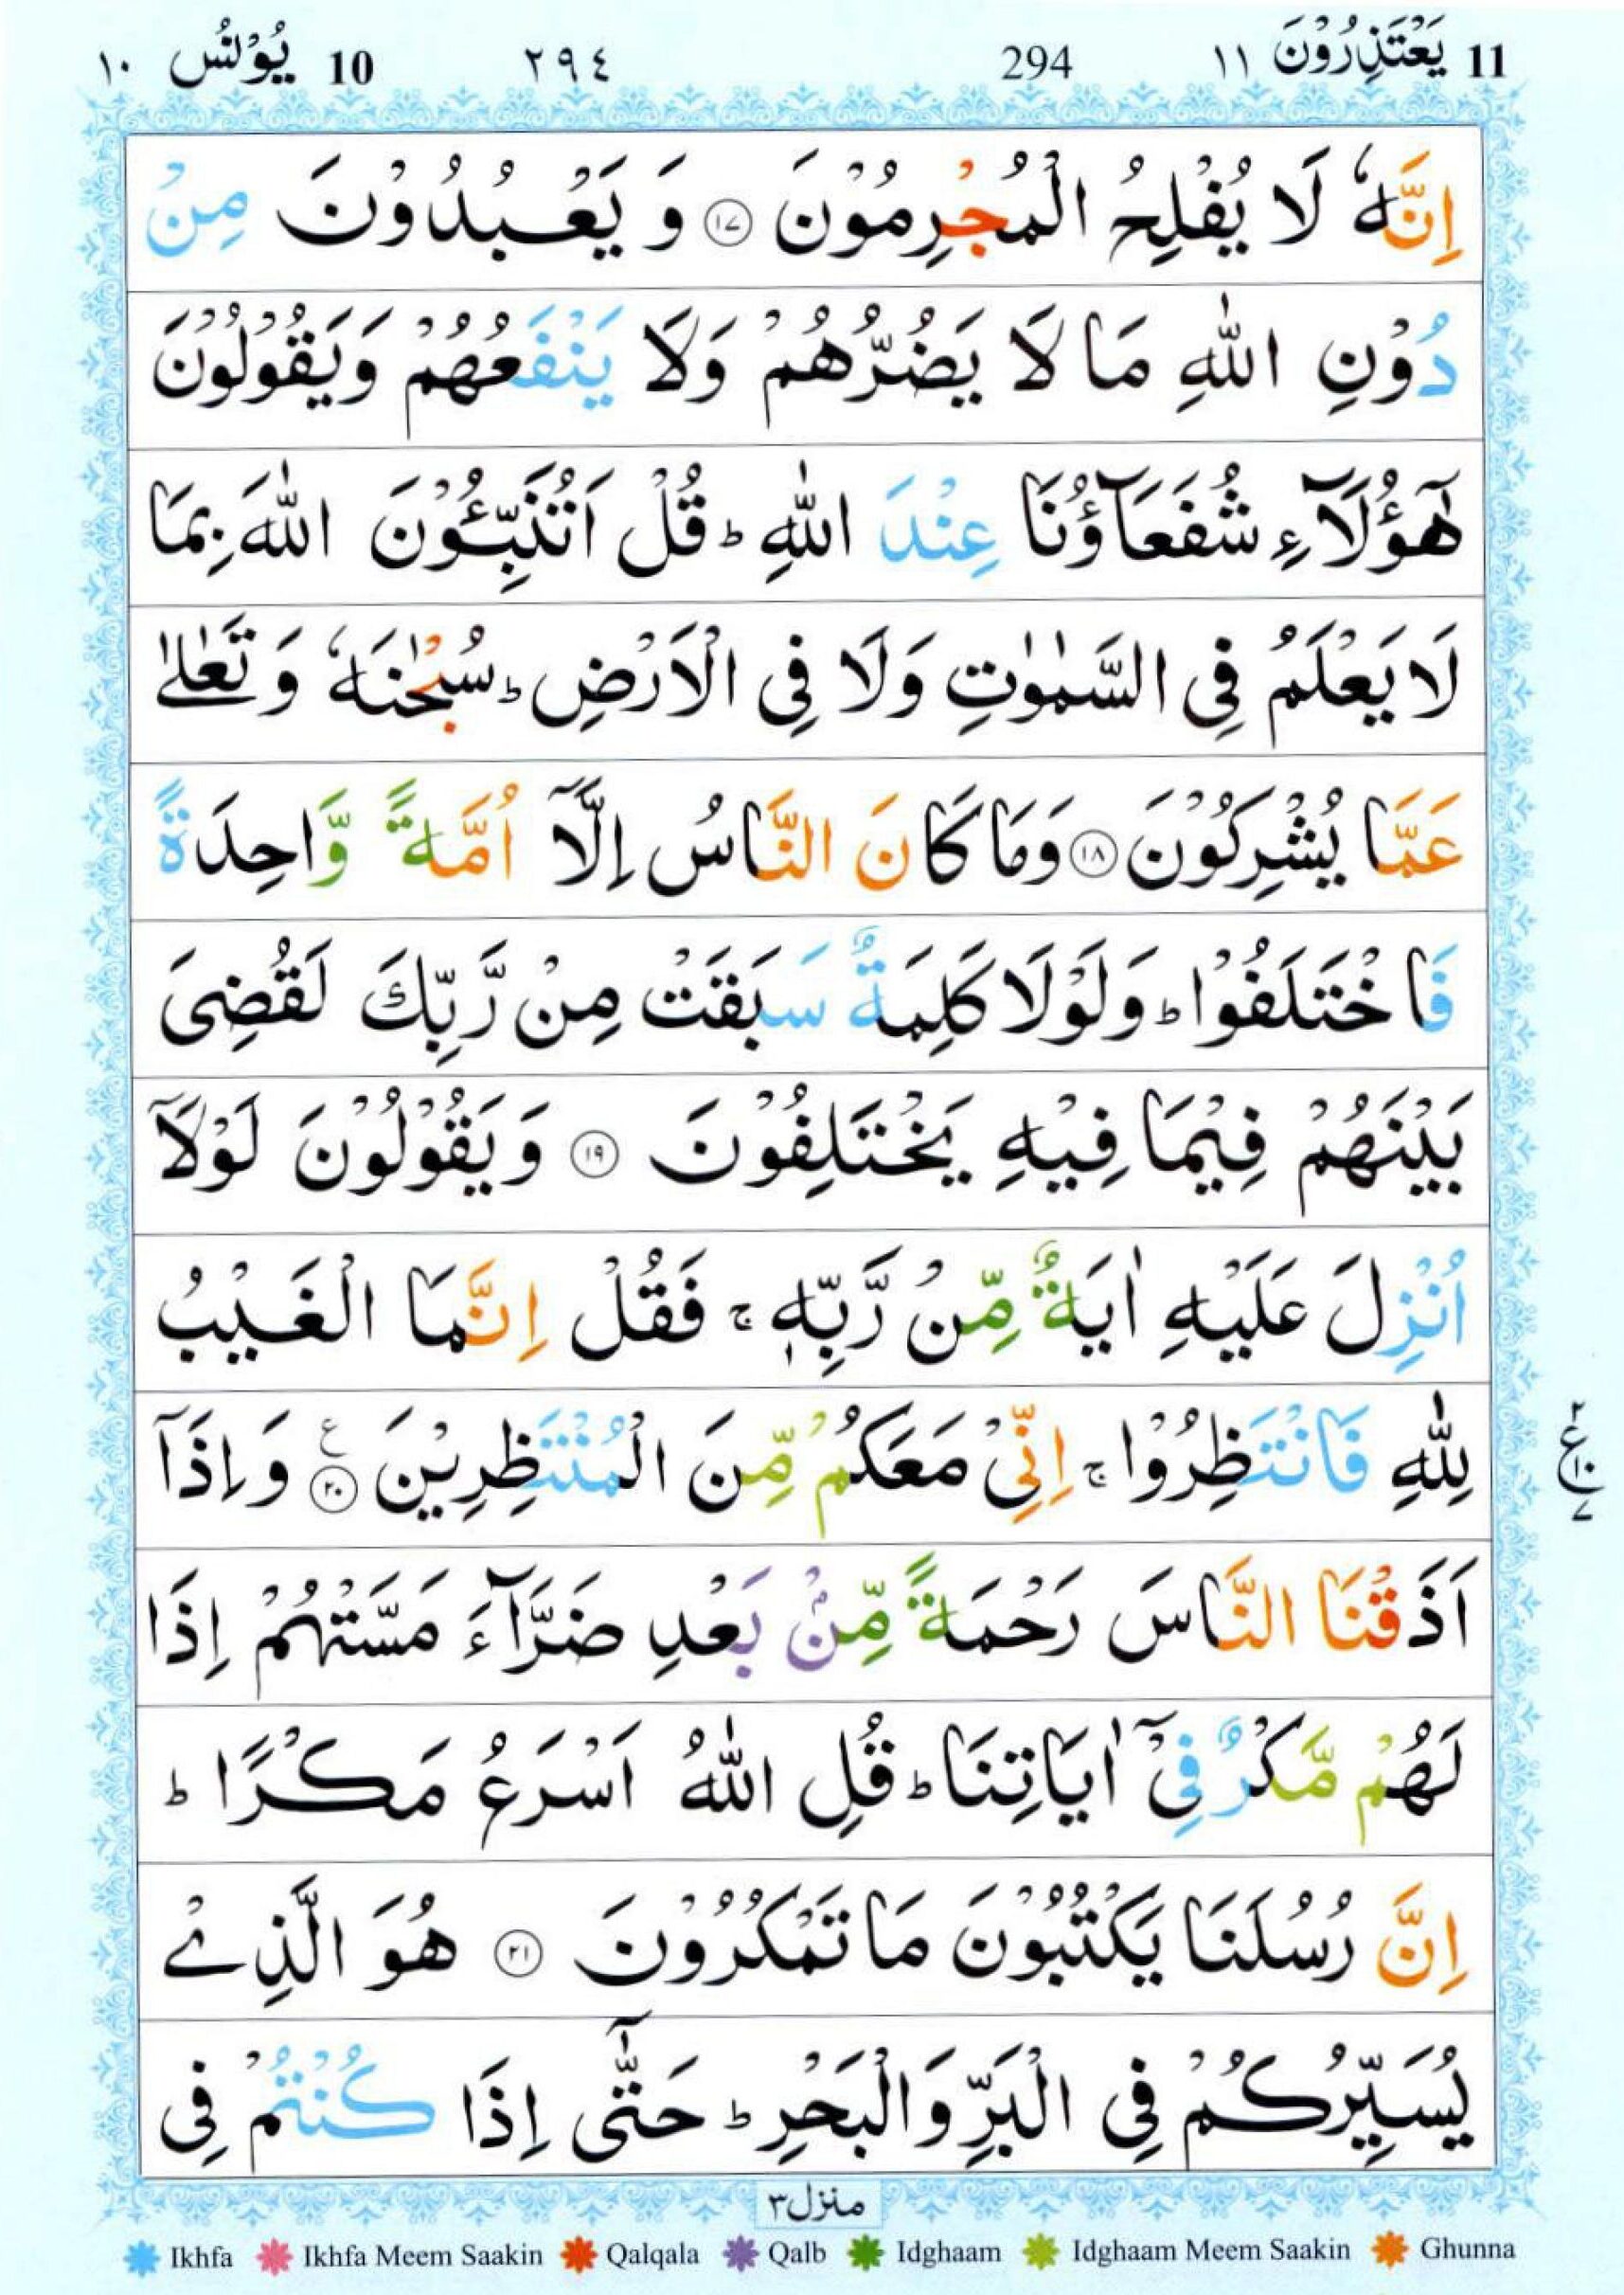 11 يَعْتَذِرُوْنَ ١١ 294 ٢٩٤ 10 يُوْنُس ١٠
اِنَّهٗ لَا يُفْلِحُ الْمُجْرِمُوْنَ ١٧ وَ يَعْبُدُوْنَ مِنْ
دُوْنِ اللّٰهِ مَا لَا يَضُرُّهُمْ وَلَا يَنْفَعُهُمْ وَيَقُوْلُوْنَ
هٰٓؤُلَآءِ شُفَعَآؤُنَا عِنْدَ اللّٰهِ ؕ قُلْ اَتُنَبِّـُٔوْنَ اللّٰهَ بِمَا
لَا يَعْلَمُ فِى السَّمٰوٰتِ وَلَا فِى الْاَرْضِ ؕ سُبْحٰنَهٗ وَ تَعٰلٰى
عَمَّا يُشْرِكُوْنَ ١٨ وَمَا كَانَ النَّاسُ اِلَّآ اُمَّةً وَّاحِدَةً
فَاخْتَلَفُوْا ؕ وَلَوْلَا كَلِمَةٌ سَبَقَتْ مِنْ رَّبِّكَ لَقُضِىَ
بَيْنَهُمْ فِيْمَا فِيْهِ يَخْتَلِفُوْنَ ١٩ وَيَقُوْلُوْنَ لَوْلَآ
اُنْزِلَ عَلَيْهِ اٰيَةٌ مِّنْ رَّبِّهٖ ۚ فَقُلْ اِنَّمَا الْغَيْبُ
لِلّٰهِ فَانْتَظِرُوْا ۚ اِنِّىْ مَعَكُمْ مِّنَ الْمُنْتَظِرِيْنَ ٢٠ ع وَاِذَآ
٢ ع ١٠ ٧
اَذَقْنَا النَّاسَ رَحْمَةً مِّنْۢ بَعْدِ ضَرَّآءَ مَسَّتْهُمْ اِذَا
لَهُمْ مَّكْرٌ فِىْٓ اٰيَاتِنَا ؕ قُلِ اللّٰهُ اَسْرَعُ مَكْرًا ؕ
اِنَّ رُسُلَنَا يَكْتُبُوْنَ مَا تَمْكُرُوْنَ ٢١ هُوَ الَّذِىْ
يُسَيِّرُكُمْ فِى الْبَرِّ وَالْبَحْرِ ؕ حَتّٰٓى اِذَا كُنْتُمْ فِى
منزل ٣
Ikhfa Ikhfa Meem Saakin Qalqala Qalb Idghaam Idghaam Meem Saakin Ghunna